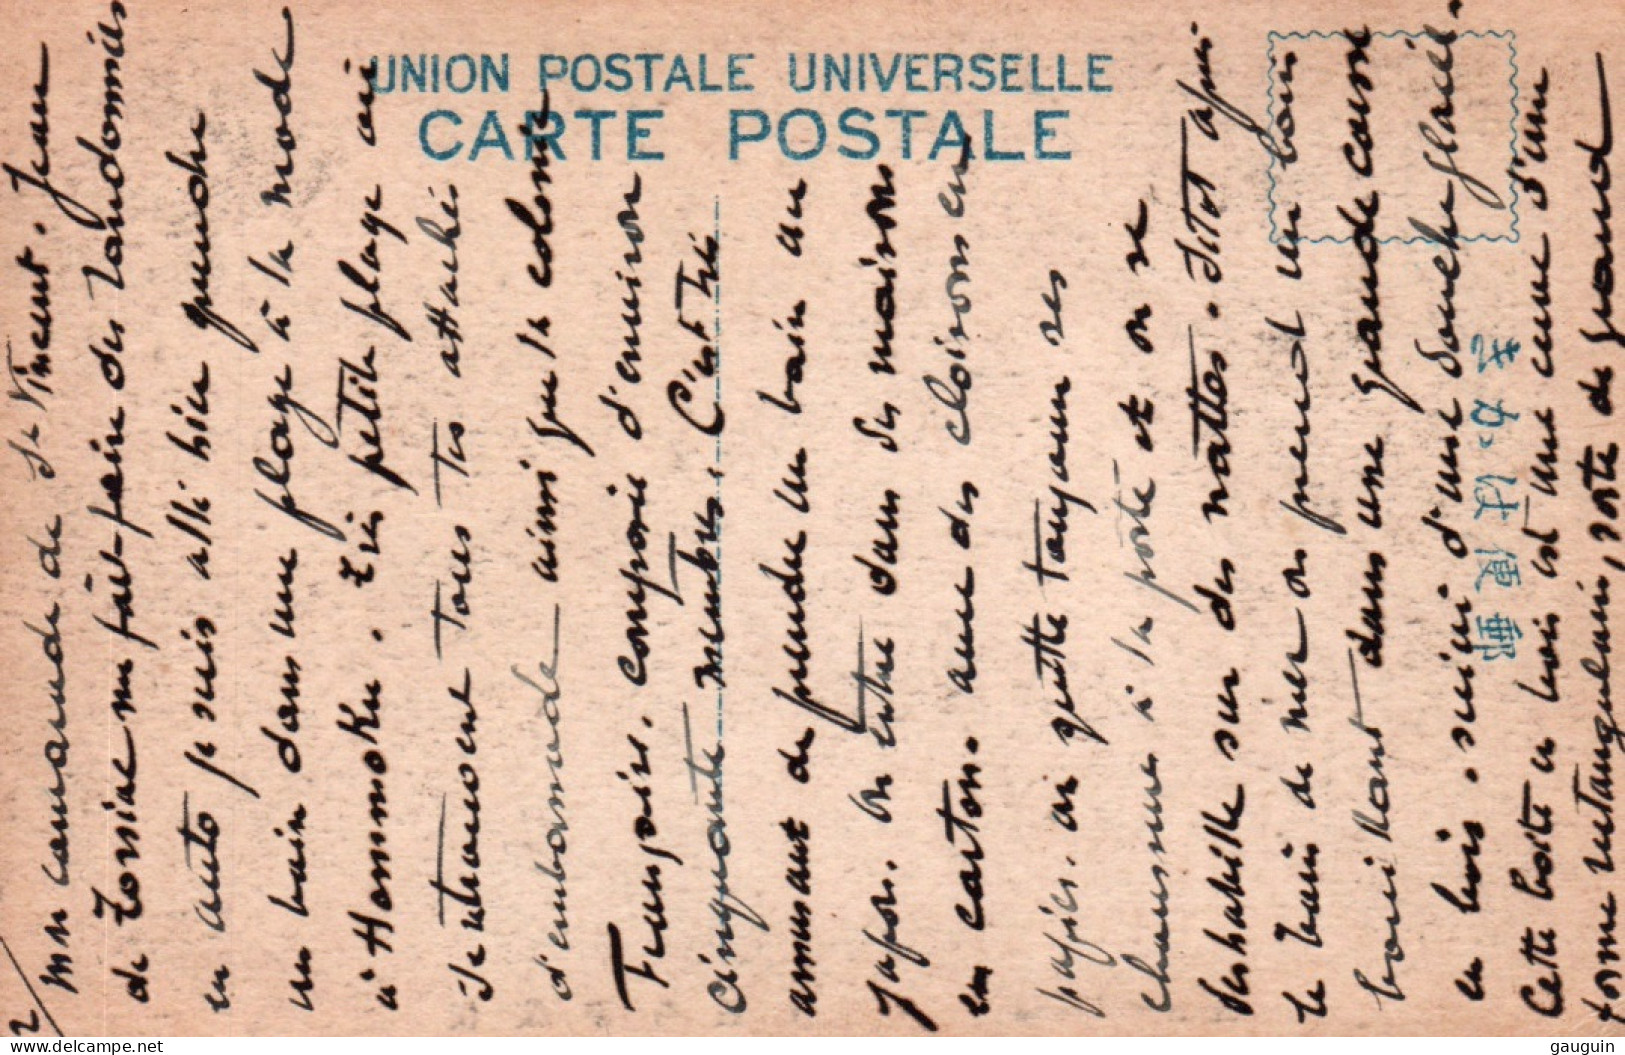 UNION POSTALE UNIVERSELLE
CARTE POSTALE
きかは便郵
2/
Mon camarade de St Vincent. Jean
de Tonnac me fait faire des randonnées
en auto je suis allé hier prendre
un bain dans une plage à la mode
à Hommoku. Très petite plage où
se retrouvent tous les attachés
d'ambassade ainsi que la colonie
Française. composée d'environ
cinquante membres. C'est très
amusant de prendre un bain au
Japon. On entre dans des maisons
en carton. avec des cloisons en
papier. où quitte toujours ses
chaussures à la porte et on se
deshabille sur des nattes. Sitôt après
le bain de mer on prend un bain
bouillant dans une grande caisse
en bois. suivi d'une douche glacée.
Cette boite en bois est une cuve d'un
forme rectangulaire, sorte de grand
gauguin